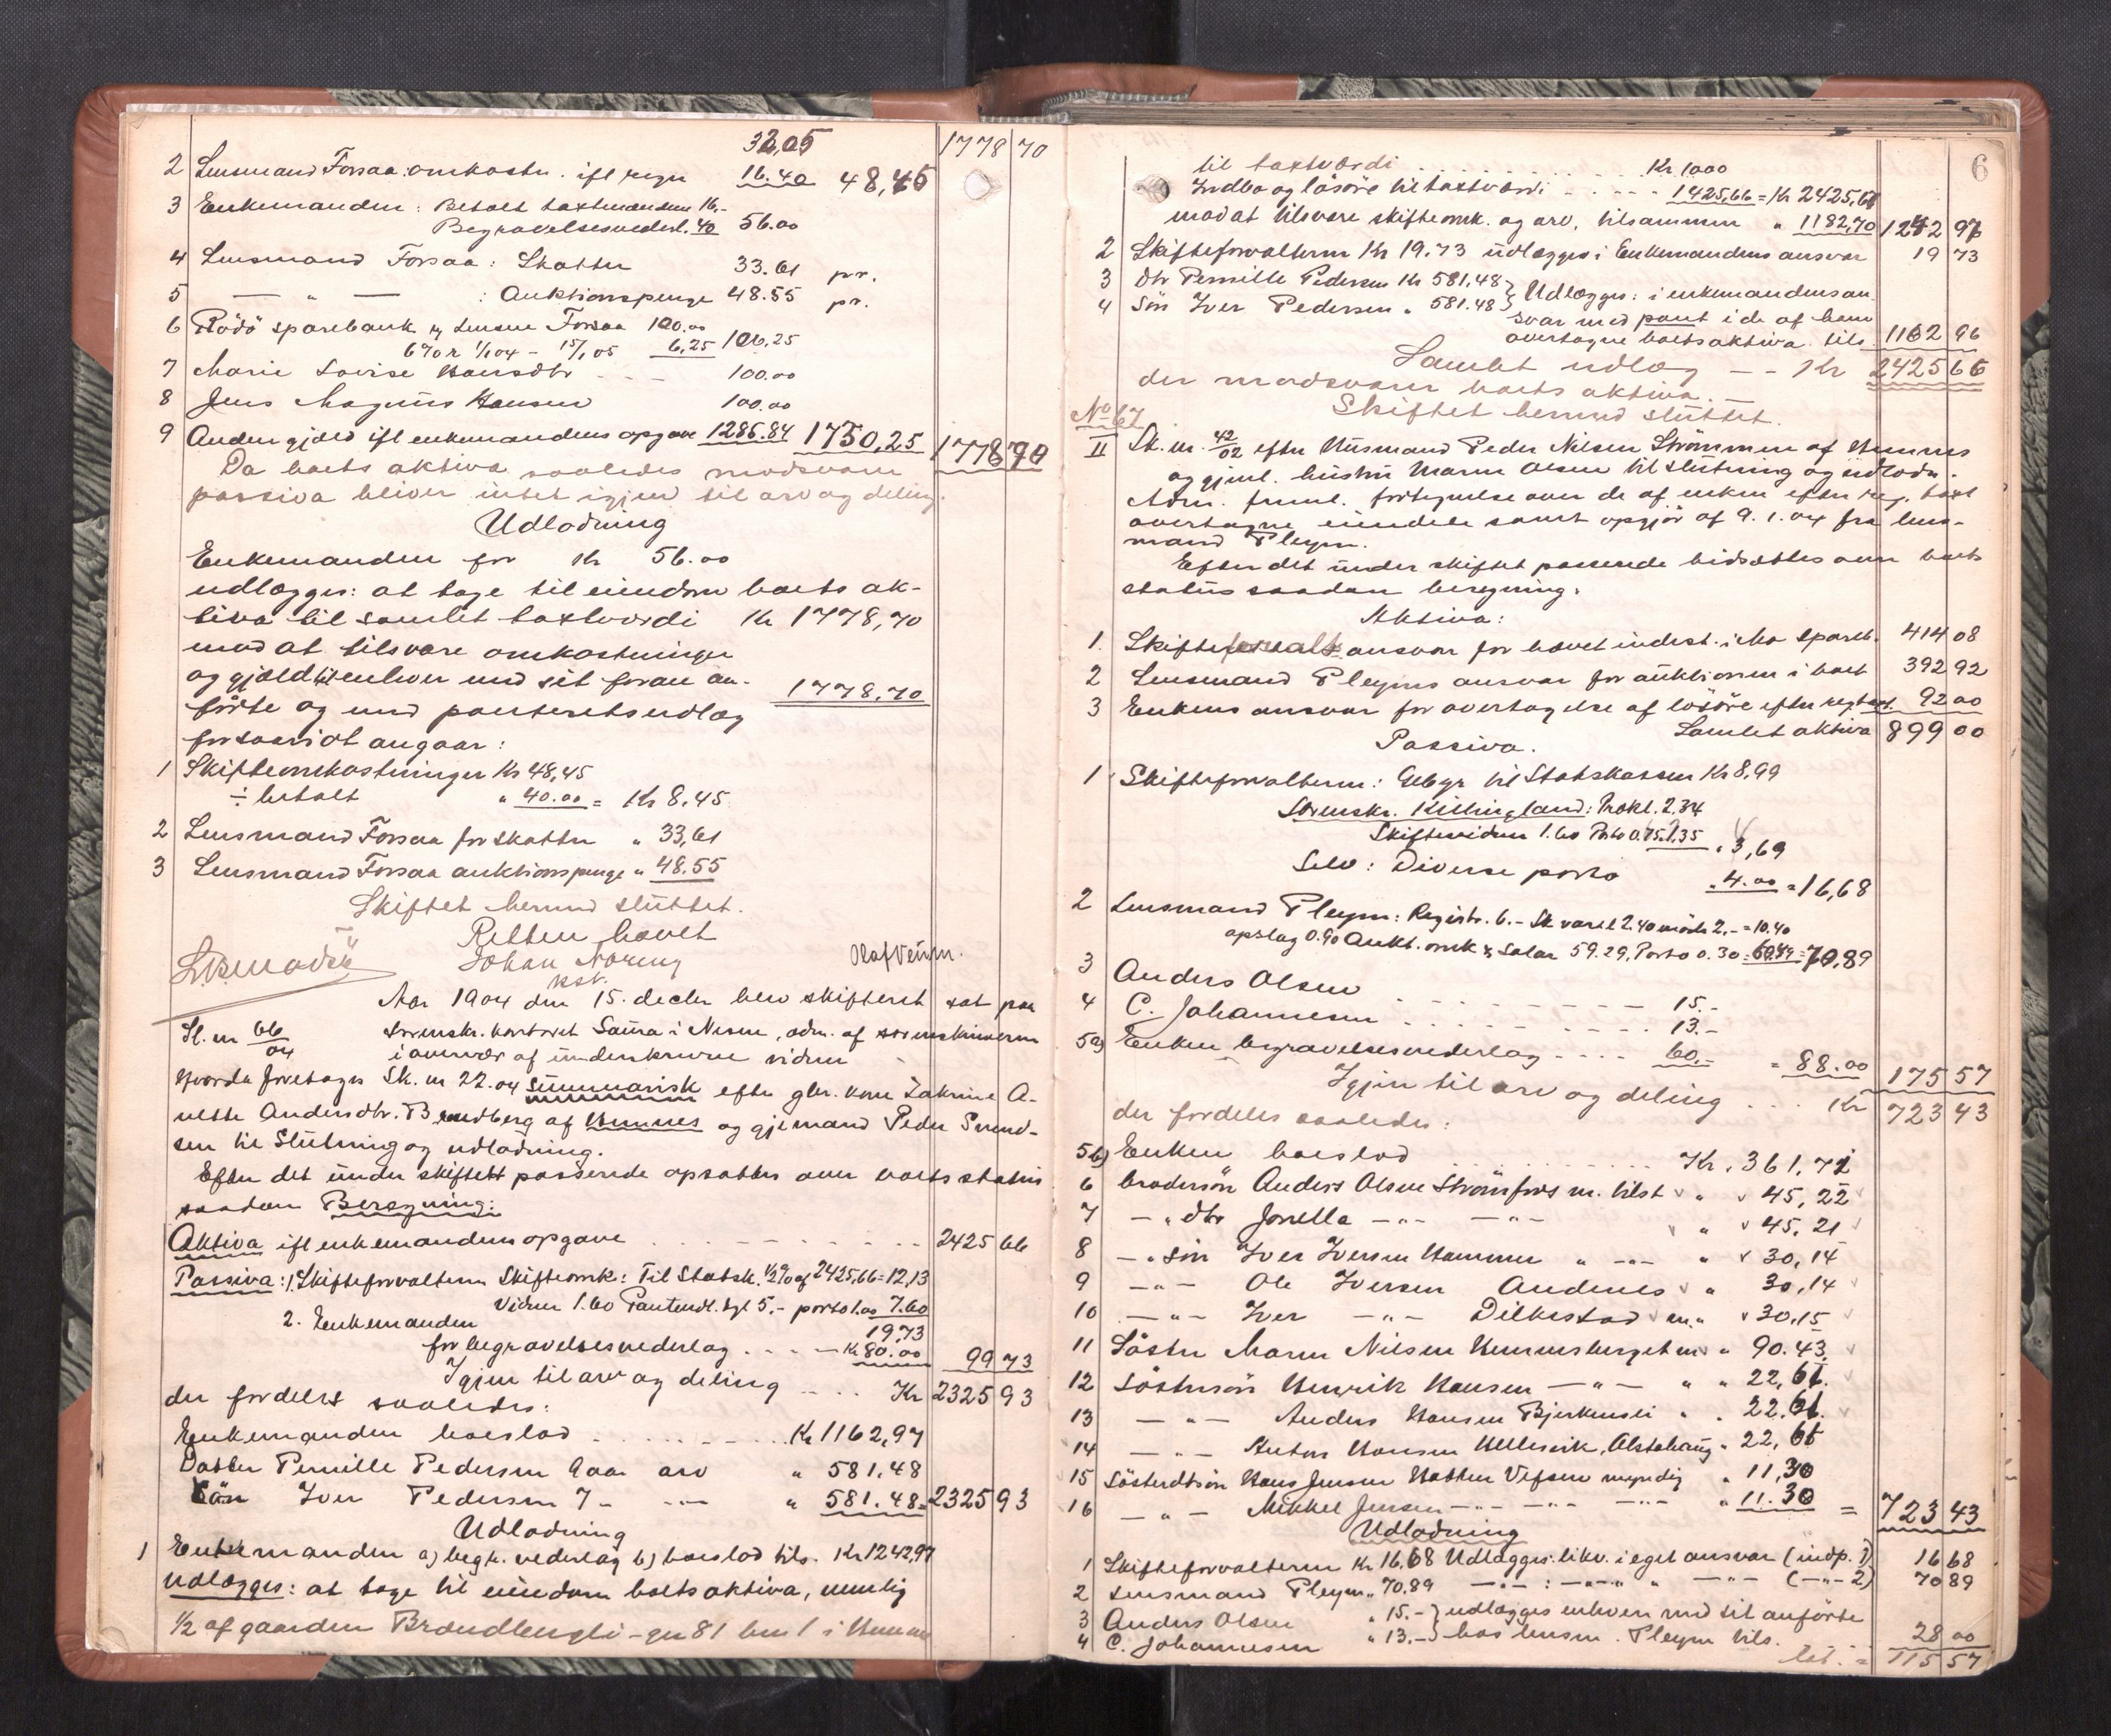 32,05 1778 70
2 Lensmand Forsaa: omkostn. ifl regn 16.40 48,45
3 Enkemanden: Betalt taxtmændene 16,-
Begravelsesvederl. 40 56.00
4 Lensmand Forsaa: Skatter 33.61 pr.
5 — " — : Auktionspenge 48.55 pr.
6 Rödö sparebank v/ Lensm Forsaa 100.00
6% r 1/1 04 - 15/1 05 6,25 106,25
7 Marie Lovise Hansdtr - - - 100.00
8 Jens Magnus Hansen 100.00
9 Anden gjæld ifl enkemandens opgave 1286.84 1730,25 1778 70
Da boets aktiva saaledes modsvare
passiva bliver intet igjen til arv og deling.
Udlodning
Enkemanden for Kr 56.00
udlægges: at tage til eiendom boets ak-
tiva til samlet taxtværdi Kr 1778,70
mod at tilsvare omkostninger
og gjæld til enhver med sit foran an-
förte og med panteretsudlæg 1778,70
forsaavidt angaar:
1 Skifteomkostninger Kr 48,45
÷ betalt " 40.00 = Kr 8.45
2 Lensmand Forsaa for skatter " 33,61
3 Lensmand Forsaa auktionspenge " 48.55
Skiftet hermed sluttet.
Retten hævet
Johan Noreng Olaf Veum.
kst.
Aar 1904 den 15. decbr blev skifteret sat paa
Sl. nr 66/04 sorenskr. kontoret Saura i Nesne, adm. af sorenskriveren
i overvær af underskrevne vidner
Hvorda foretages Sk. nr 22.04 summarisk efter gbr. kone Zakrine A-
nette Andersdtr. Brendberg af Hemnes og gjemand Peder Svend-
sen til Slutning og udlodning.
Efter det under skiftet passerede opsattes over boets status
saadan Beregning:
Aktiva ifl enkemandens opgave - - - - 2425 66
Passiva: 1. Skifteforvalteren Skifteomk: Til Statsk. 1/2% af 2425,66 = 12,13
Vidner 1.60 Pantendl. tgl 5,- porto 1.00 7.60
2. Enkemanden 19,73
for begravelsesvederlag . . - - Kr 80.00 99 73
Igjen til arv og deling - . . . Kr 2325 93
der fordeles saaledes:
Enkemanden boeslod . . . . . . Kr 1162,97
Datter Pernille Pedersen 9 aar arv " 581.48
Sön Iver Pedersen 7 - -"- " 581.48 = 2325 93
Udlodning
1 Enkemanden a) begr. vederlag b) boeslod tils. Kr 1242,97
udlægges: at tage til eiendom boets aktiva, nemlig
1/2 af gaarden Brændbergli - gn 81 bn 1 i Hemnes
6
til taxtværdi . . . . . . Kr 1000
Indbo og lösöre til taxtværdi - - . - - 1425,66 = Kr 2425,66
mod at tilsvare skifteomk. og arv, tilsammen " 1182,70 1242 97
2 Skifteforvalteren Kr 19.73 udlægges i Enkemandens ansvar 19 73
3 Dtr Pernille Pedersen Kr 581,48 } Udlægges: i enkemandens an-
4 Sön Iver Pedersen " 581.48 } svar med pant i de af ham
overtagne boetsaktiva tils. 1162 96
Samlet udlæg - - Kr 2425 66
der modsvarer boets aktiva. -
Skiftet hermed sluttet.
No 67
II Sk. nr. 42/02 efter Husmand Peder Nilsen Strömmen af Hemnes
og gjenl. hustru Maren Olsen til slutning og udlodn.
Adm. freml. fortegnelse over de af enken efter reg. taxt
overtagne eiendele samt opgjör af 9.1.04 fra lens-
mand Pleym.
Efter det under skiftet passerede bidsattes over boets
status saadan beregning:
Aktiva:
1. Skifteforvalt ansvar for hævet indest. i Mo spareb. 414 08
2 Lensmand Pleyms ansvar for auktionen i boet 392 92
3 Enkens ansvar for overtagelse af lösöre efter reg taxt. 92 00
Samlet aktiva 899 00
Passiva.
1 Skifteforvalteren: Gebyr til Statskassen Kr 8,99
Sorenskr. Killingland: Prokl. 2.34
Skiftevidner 1.60 Porto 0.75 1.35 " 3,69
Selv: Diverse porto " 4.00 = 16,68
2 Lensmand Pleym: Registr. 6.- Sk varsl 2.40 möde 2.- = 10.40
opslag 0.90 Aukt. omk & Salær 59.29, Porto 0.30 = 60,49 = 70,89
3 Anders Olsen - - - - - - 15.-
4 C. Johannesen . . . . . . 13.-
5a) Enken begravelsesvederlag - - - - 60.- = 88.00 175 57
Igjen til arv og deling . . . Kr 723 43
der fordeles saaledes:
5b) Enken boeslod . . . . . . . Kr. 361.71
6 brodersön Anders Olsen Strömfors m. tilst " " 45,22
7 - " dtr Jorella -"- -"- " 45,21
8 - " sön Iver Iversen Hammer " -"- " 30,14
9 -"- Ole Iversen Andenes " 30,14
10 -"- Iver -"- Dilkestad m. " 30,15
11 Söster Maren Nilsen Hemnesberget m " 90.43
12 Söstersön Henrik Hansen -"- " " 22,61.
13 -"- Anders Hansen Bjerkmoli " . 22.61.
14 -"- Anton Hansen Ulleviik, Alstahaug " 22,61
15 Söstersdtrsön Hans Jensen Hatten Vefsen myndig " 11,30
16 -"- Mikkel Jensen -"- -"- -"- " 11.30 = 723 43
Udlodning
1 Skifteforvalteren Kr 16,68 Udlægges: likv. i eget ansvar (indp. 1) 16 68
2 Lensmand Pleym " 70.89 -"- : -"-"- " -"- (-"- 2) 70 89
3 Anders Olsen " 15.- } udlægges enhver med sit anförte
4 C. Johannesen " 13.- } hos lensm. Pleym tils. 28 00
lat. = 115 57